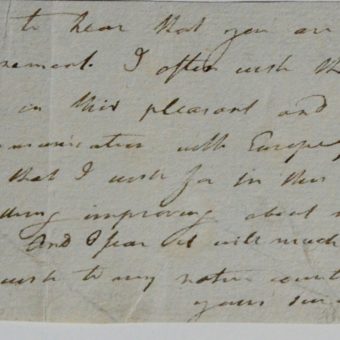 to hear that you are
nement. I often wish th
in this pleasant and
munication with Europe
that I wish for in this
ding improving about
and I fear it will much
wish to my native count
yours sin